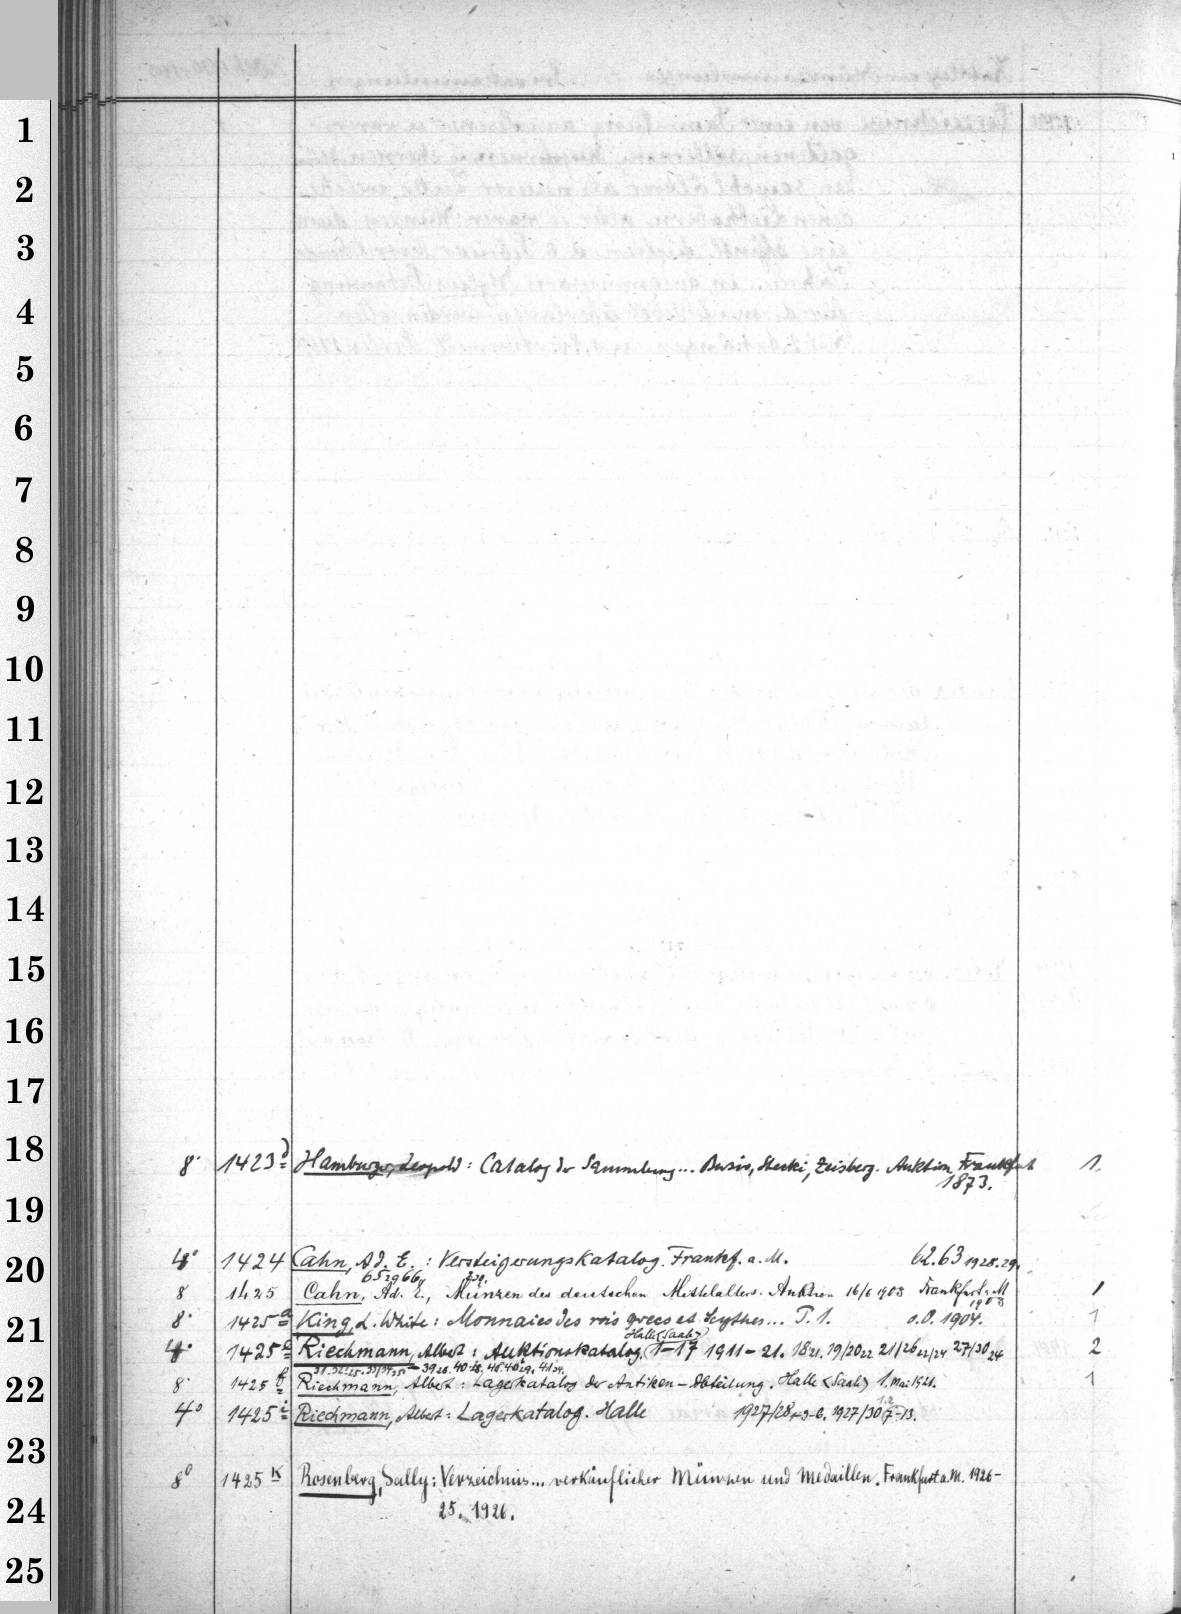 1
2
3
4
5
6
7
8
9
10
11
12
13
14
15
16
17
18
19
20
21
22
23
24
25
8° 1423 d Hamburger, Leopold: Catalog der Sammlung... Zeisberg. Auktion Frankfurt 1
1873.
4° 1424 Cahn, Ad. E.: Versteigerungskatalog. Frankf. a. M. 62.63 1928.29.
8 1425 Cahn, Ad. E., Münzen des deutschen Mittelalters. Auktion 1903 Frankfurt a M 1
1903
8° 1425 a King, L. White: Monnaies des rois grecs et Scythes... T. 1. o.O. 1904. 1
Halle (Saale)
4° 1425 Riechmann, Albert: Auktionskatalog. 1-17 1911-21. 18 21. 19/20 22 21/26 22/24 27/30 24 2
8° 1425 Riechmann, Albert: Lagerkatalog der Antiken-Abteilung. Halle (Saale) 1. Mai 1921. 1
4° 1425 i Riechmann, Albert: Lagerkatalog. Halle 1927/28 1927/30 7-13.
8° 1425 K Rosenberg, Sally: Verzeichnis... verkäuflicher Münzen und Medaillen. Frankfurt a. M. 1926-
25. 1926.